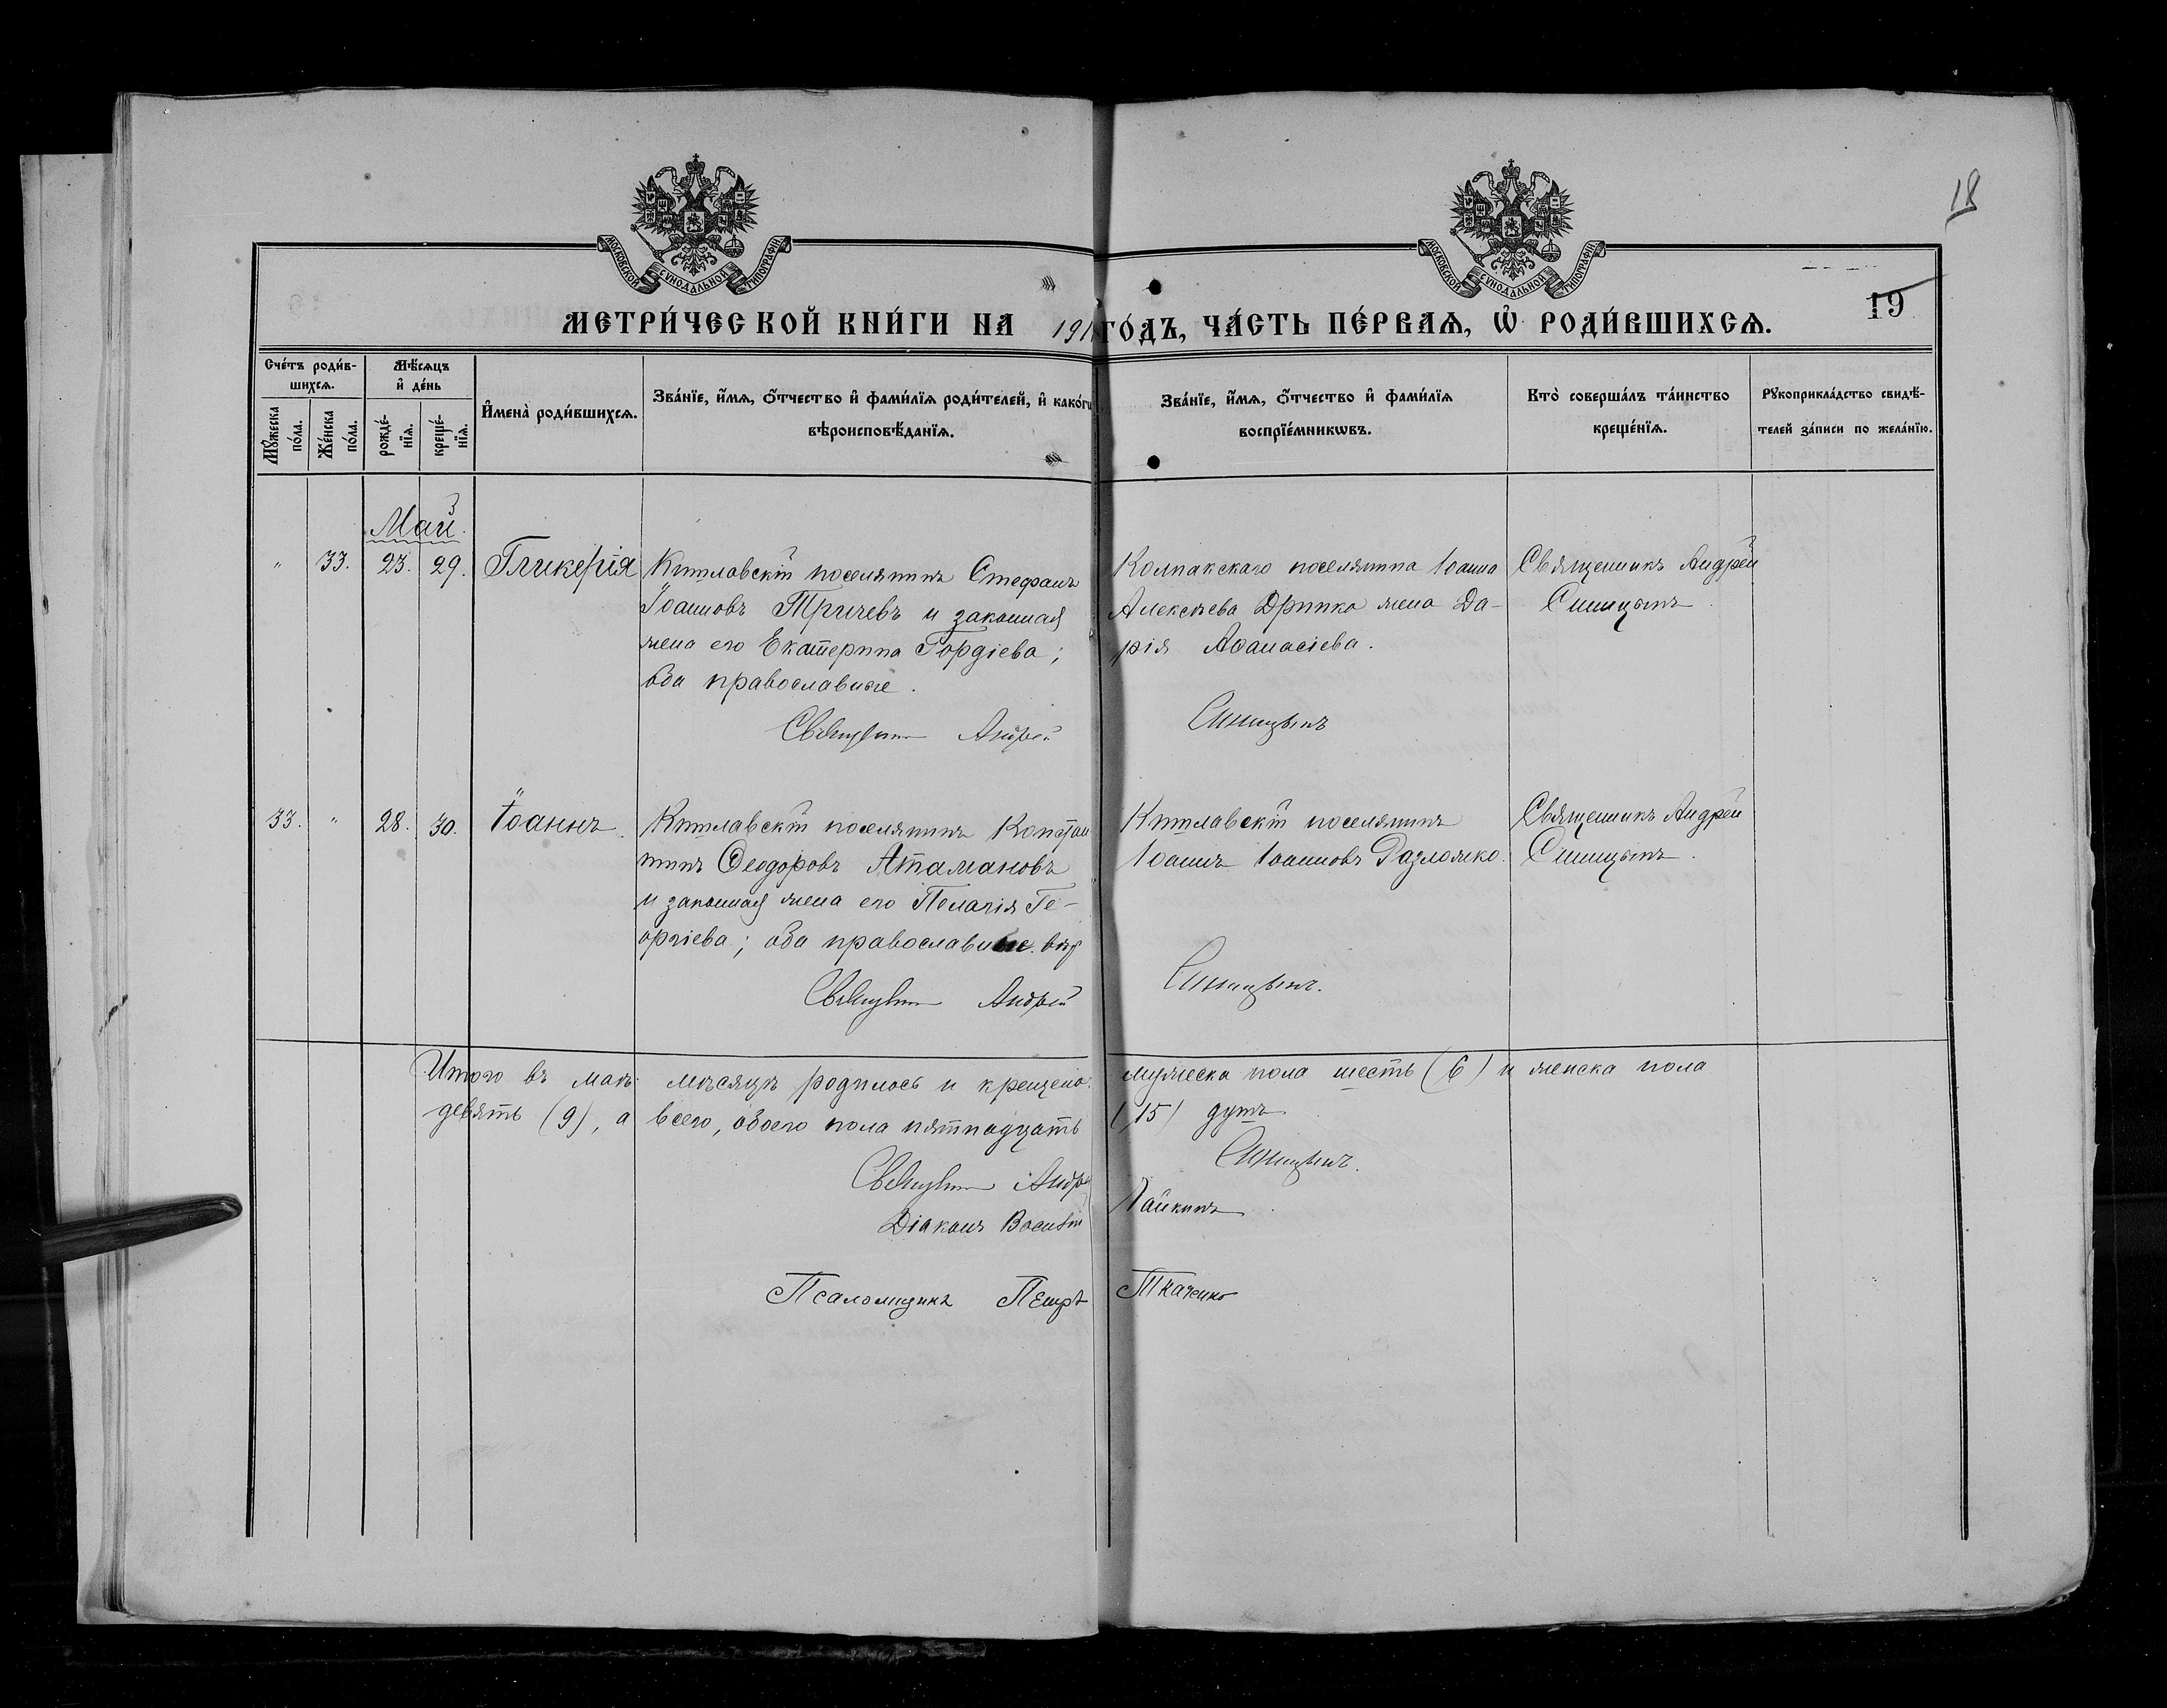 18
МОСКОВСКОЙ СѴНОДАЛЬНОЙ ТИПОГРАФІИ
МОСКОВСКОЙ СѴНОДАЛЬНОЙ ТИПОГРАФІИ
19
МЕТРИ́ЧЕСКОЙ КНИ́ГИ НА 191 ГО́ДЪ, ЧА́СТЬ ПЕ́РВАѦ, Ѡ҆ РОДИ́ВШИХСѦ.
Сче́тъ роди́в-
шихсѧ.
Мꙋ́жеска по́ла.
Же́нска по́ла.
Мѣ́сѧцъ
и҆ де́нь
рожде́-
нїѧ.
креще́-
нїѧ.
И҆мена̀ роди́вшихсѧ.
Зва́нїе, и҆́мѧ, ѻ҆́тчество и҆ фами́лїѧ роди́телей, и҆ како́гѡ
вѣроисповѣ́данїѧ.
Зва́нїе, и҆́мѧ, ѻ҆́тчество и҆ фами́лїѧ
воспрїе́мникѡвъ.
Кто̀ соверша́лъ та́инство
креще́нїѧ.
Рꙋкоприкла́дство свидѣ́-
телей за́писи по жела́нїю.
Май.
" 33. 23. 29. Гликерія
Китлавскій поселянинъ Стефанъ
Іоанновъ Тричевъ и законная
жена его Екатерина Гордіева;
оба православные.
Колпакскаго поселянина Іоанна
Алексѣева Дринко жена Да-
рія Аѳанасіева.
Священникъ Андрей
Синицынъ
Священникъ Андрей Синицынъ
33. " 28. 30. Іоаннъ.
Китлавскій поселянинъ Констан
тинъ Ѳеодоровъ Атамановъ
и законная жена его Пелагія Ге-
оргіева; оба православные.
Китлавскій поселянинъ
Іоаннъ Іоанновъ
Священникъ Андрей
Синицынъ.
Священникъ Андрей Синицынъ.
Итого въ маѣ мѣсяцѣ родилось и крещено мужеска пола шесть (6) и женска пола
девять (9), а всего, обоего пола пятнадцать (15) душъ
Священникъ Андрей Синицынъ.
Діаконъ Василій
Псаломщикъ Петръ Ткаченко